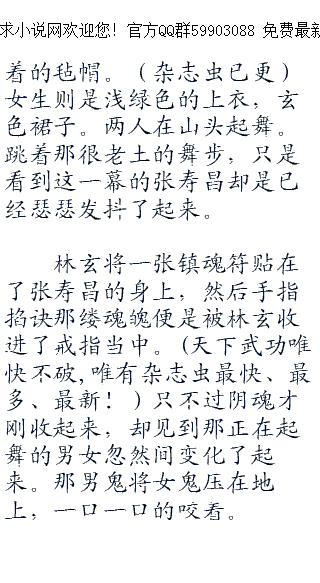 求小说网欢迎您！官方QQ群59903088 免费最新
着的毡帽。（杂志虫已更）
女生则是浅绿色的上衣，玄
色裙子。两人在山头起舞。
跳着那很老土的舞步，只是
看到这一幕的张寿昌却是已
经瑟瑟发抖了起来。
林玄将一张镇魂符贴在
了张寿昌的身上，然后手指
掐诀那缕魂魄便是被林玄收
进了戒指当中。(天下武功唯
快不破,唯有杂志虫最快、最
多、最新！）只不过阴魂才
刚收起来，却见到那正在起
舞的男女忽然间变化了起
来。那男鬼将女鬼压在地
上，一口一口的咬着。